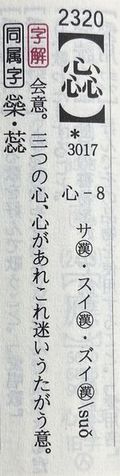 2320
【惢】
*
3017
心-8
サ㊊・スイ㊊・ズイ㊊/suǒ
字解 会意。三つの心、心があれこれ迷いうたがう意。
同属字 橤・蕊